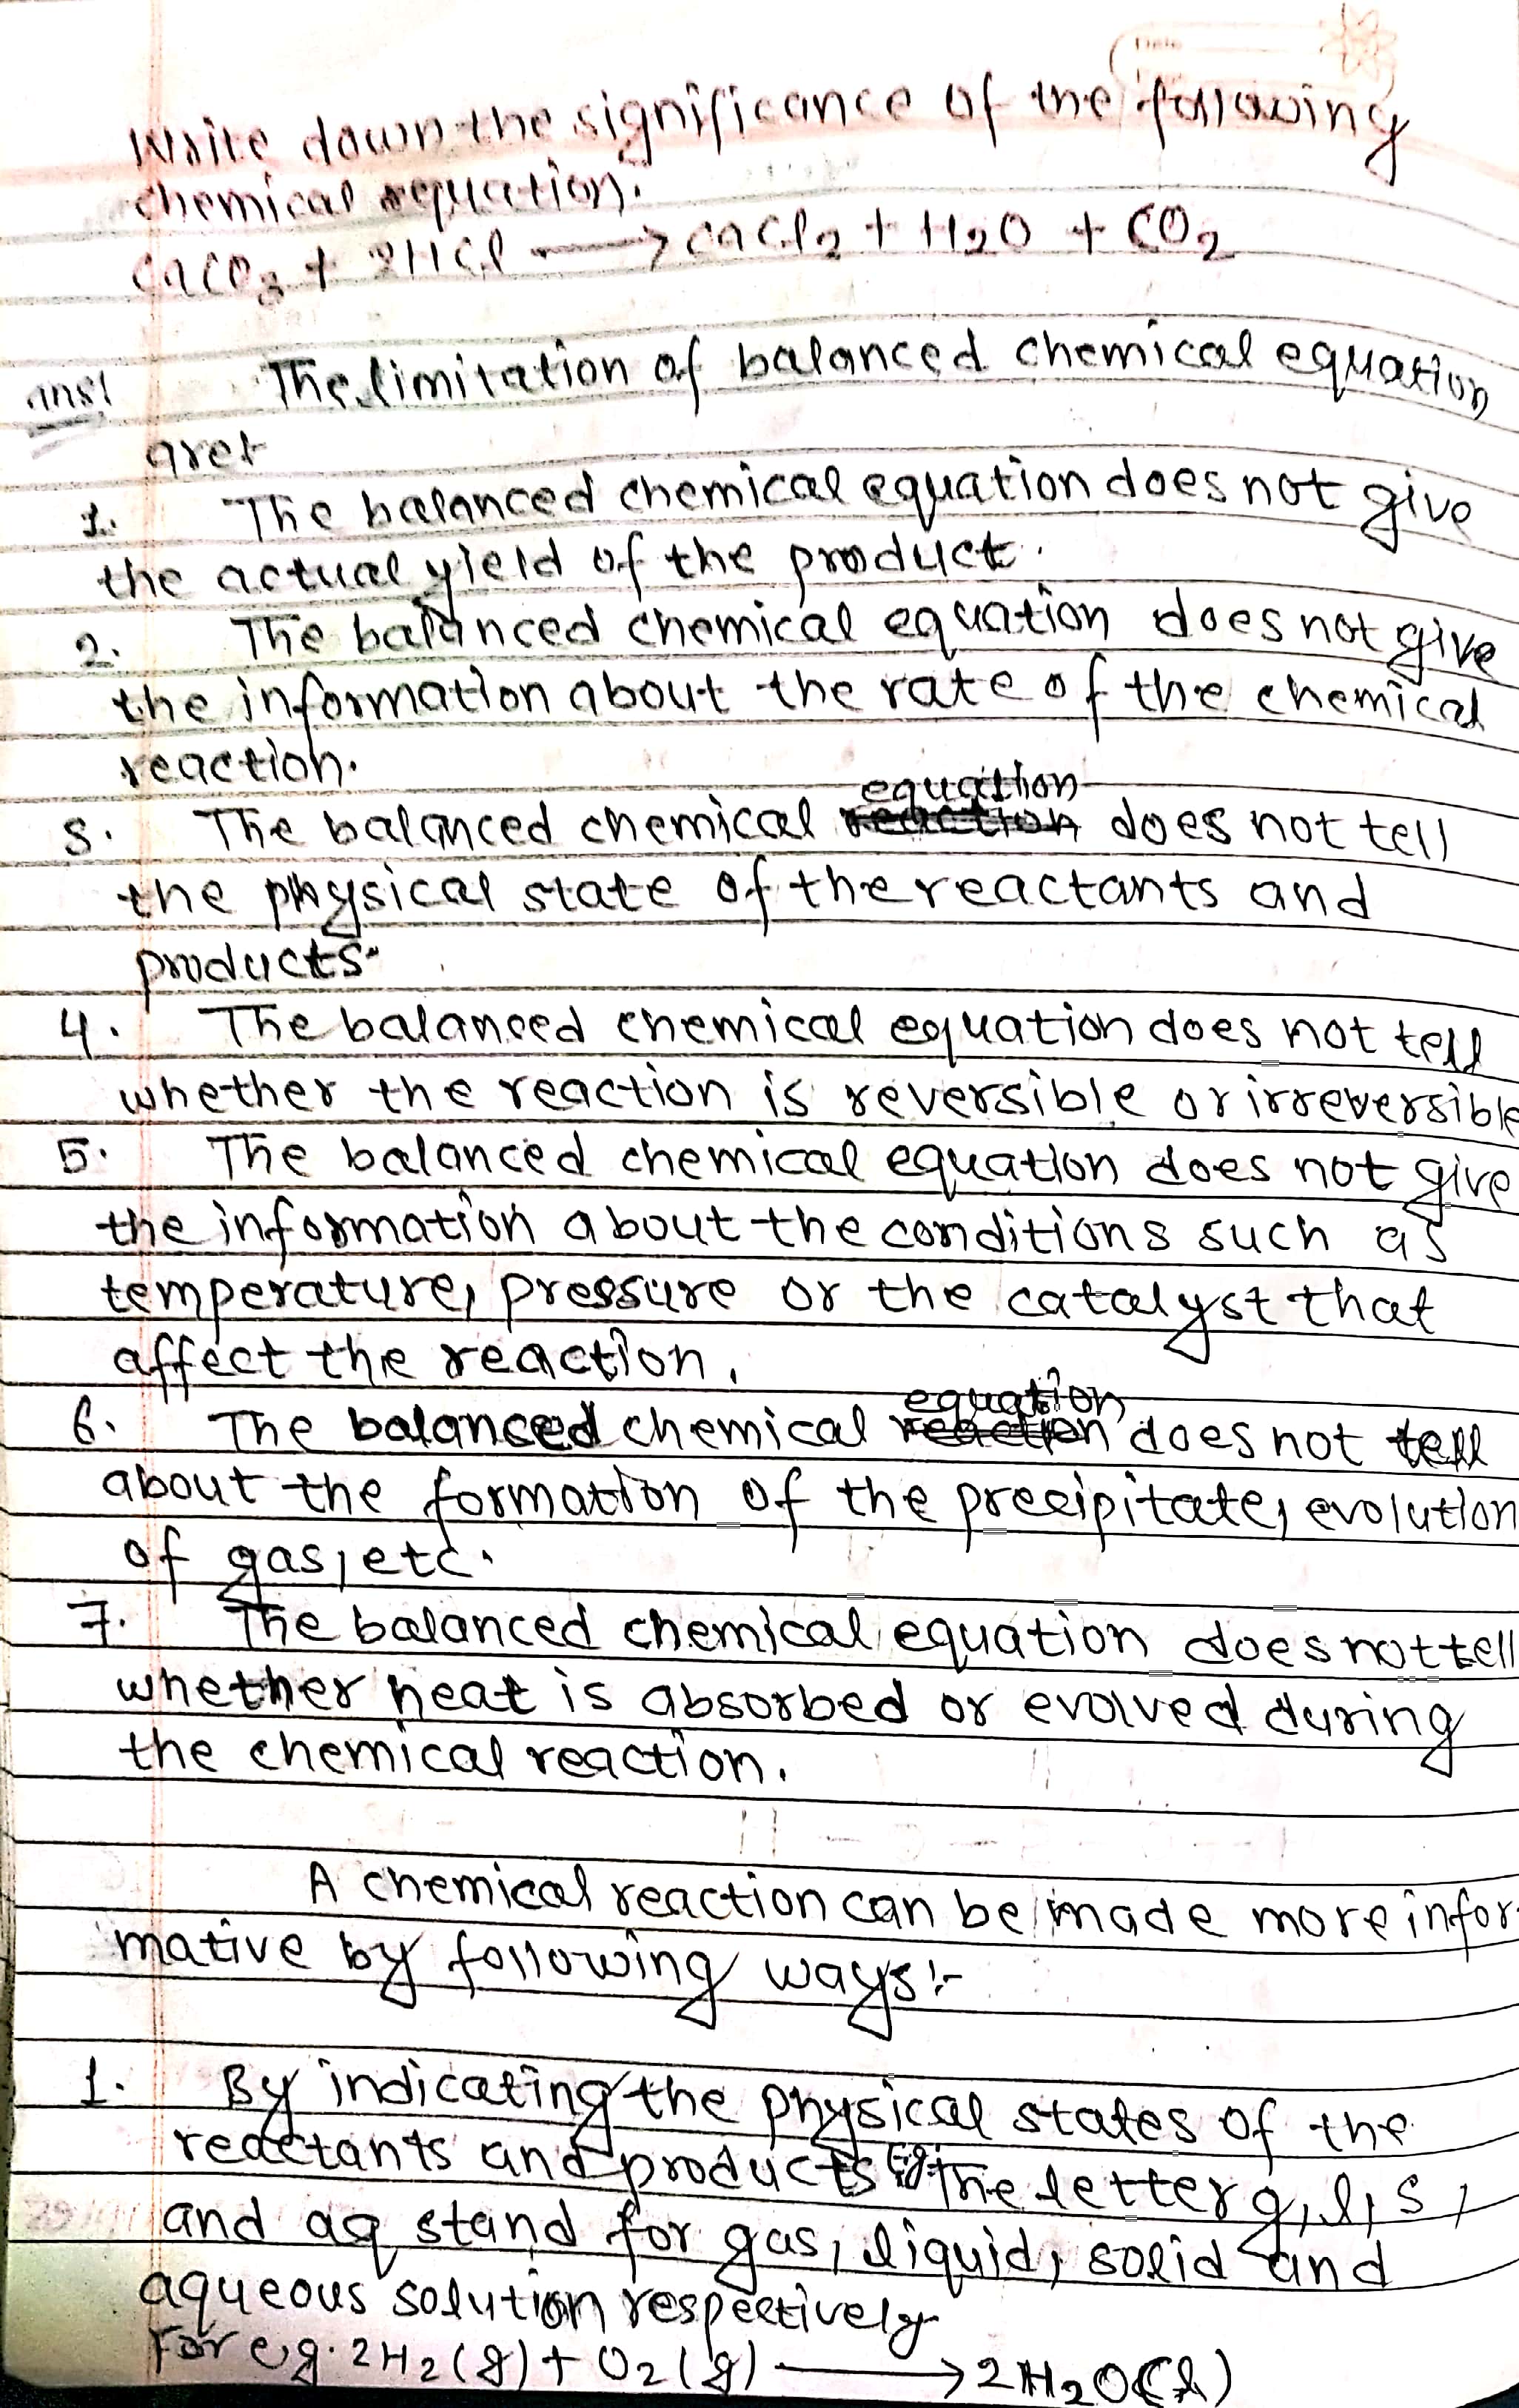 Date
Write down the significance of the following
chemical equation.
CaCO3 + 2HCl → CaCl2 + H2O + CO2
ans!
The limitation of balanced chemical equation
are:
1. The balanced chemical equation does not give
the actual yield of the product.
2. The balanced chemical equation does not give
the information about the rate of the chemical
reaction.
equation
3. The balanced chemical reaction does not tell
the physical state of the reactants and
products.
4. The balanced chemical equation does not tell
whether the reaction is reversible or irreversible
5. The balanced chemical equation does not give
the information about the conditions such as
temperature, pressure or the catalyst that
affect the reaction.
equation
6. The balanced chemical reaction does not tell
about the formation of the precipitate, evolution
of gas, etc.
7. The balanced chemical equation does not tell
whether heat is absorbed or evolved during
the chemical reaction.
A chemical reaction can be made more infor-
mative by following ways:-
1. By indicating the physical states of the
reactants and products Eg: The letter g, l, s,
and aq stand for gas, liquid, solid and
aqueous solution respectively
For eg. 2H2(g) + O2(g) → 2H2O(l)